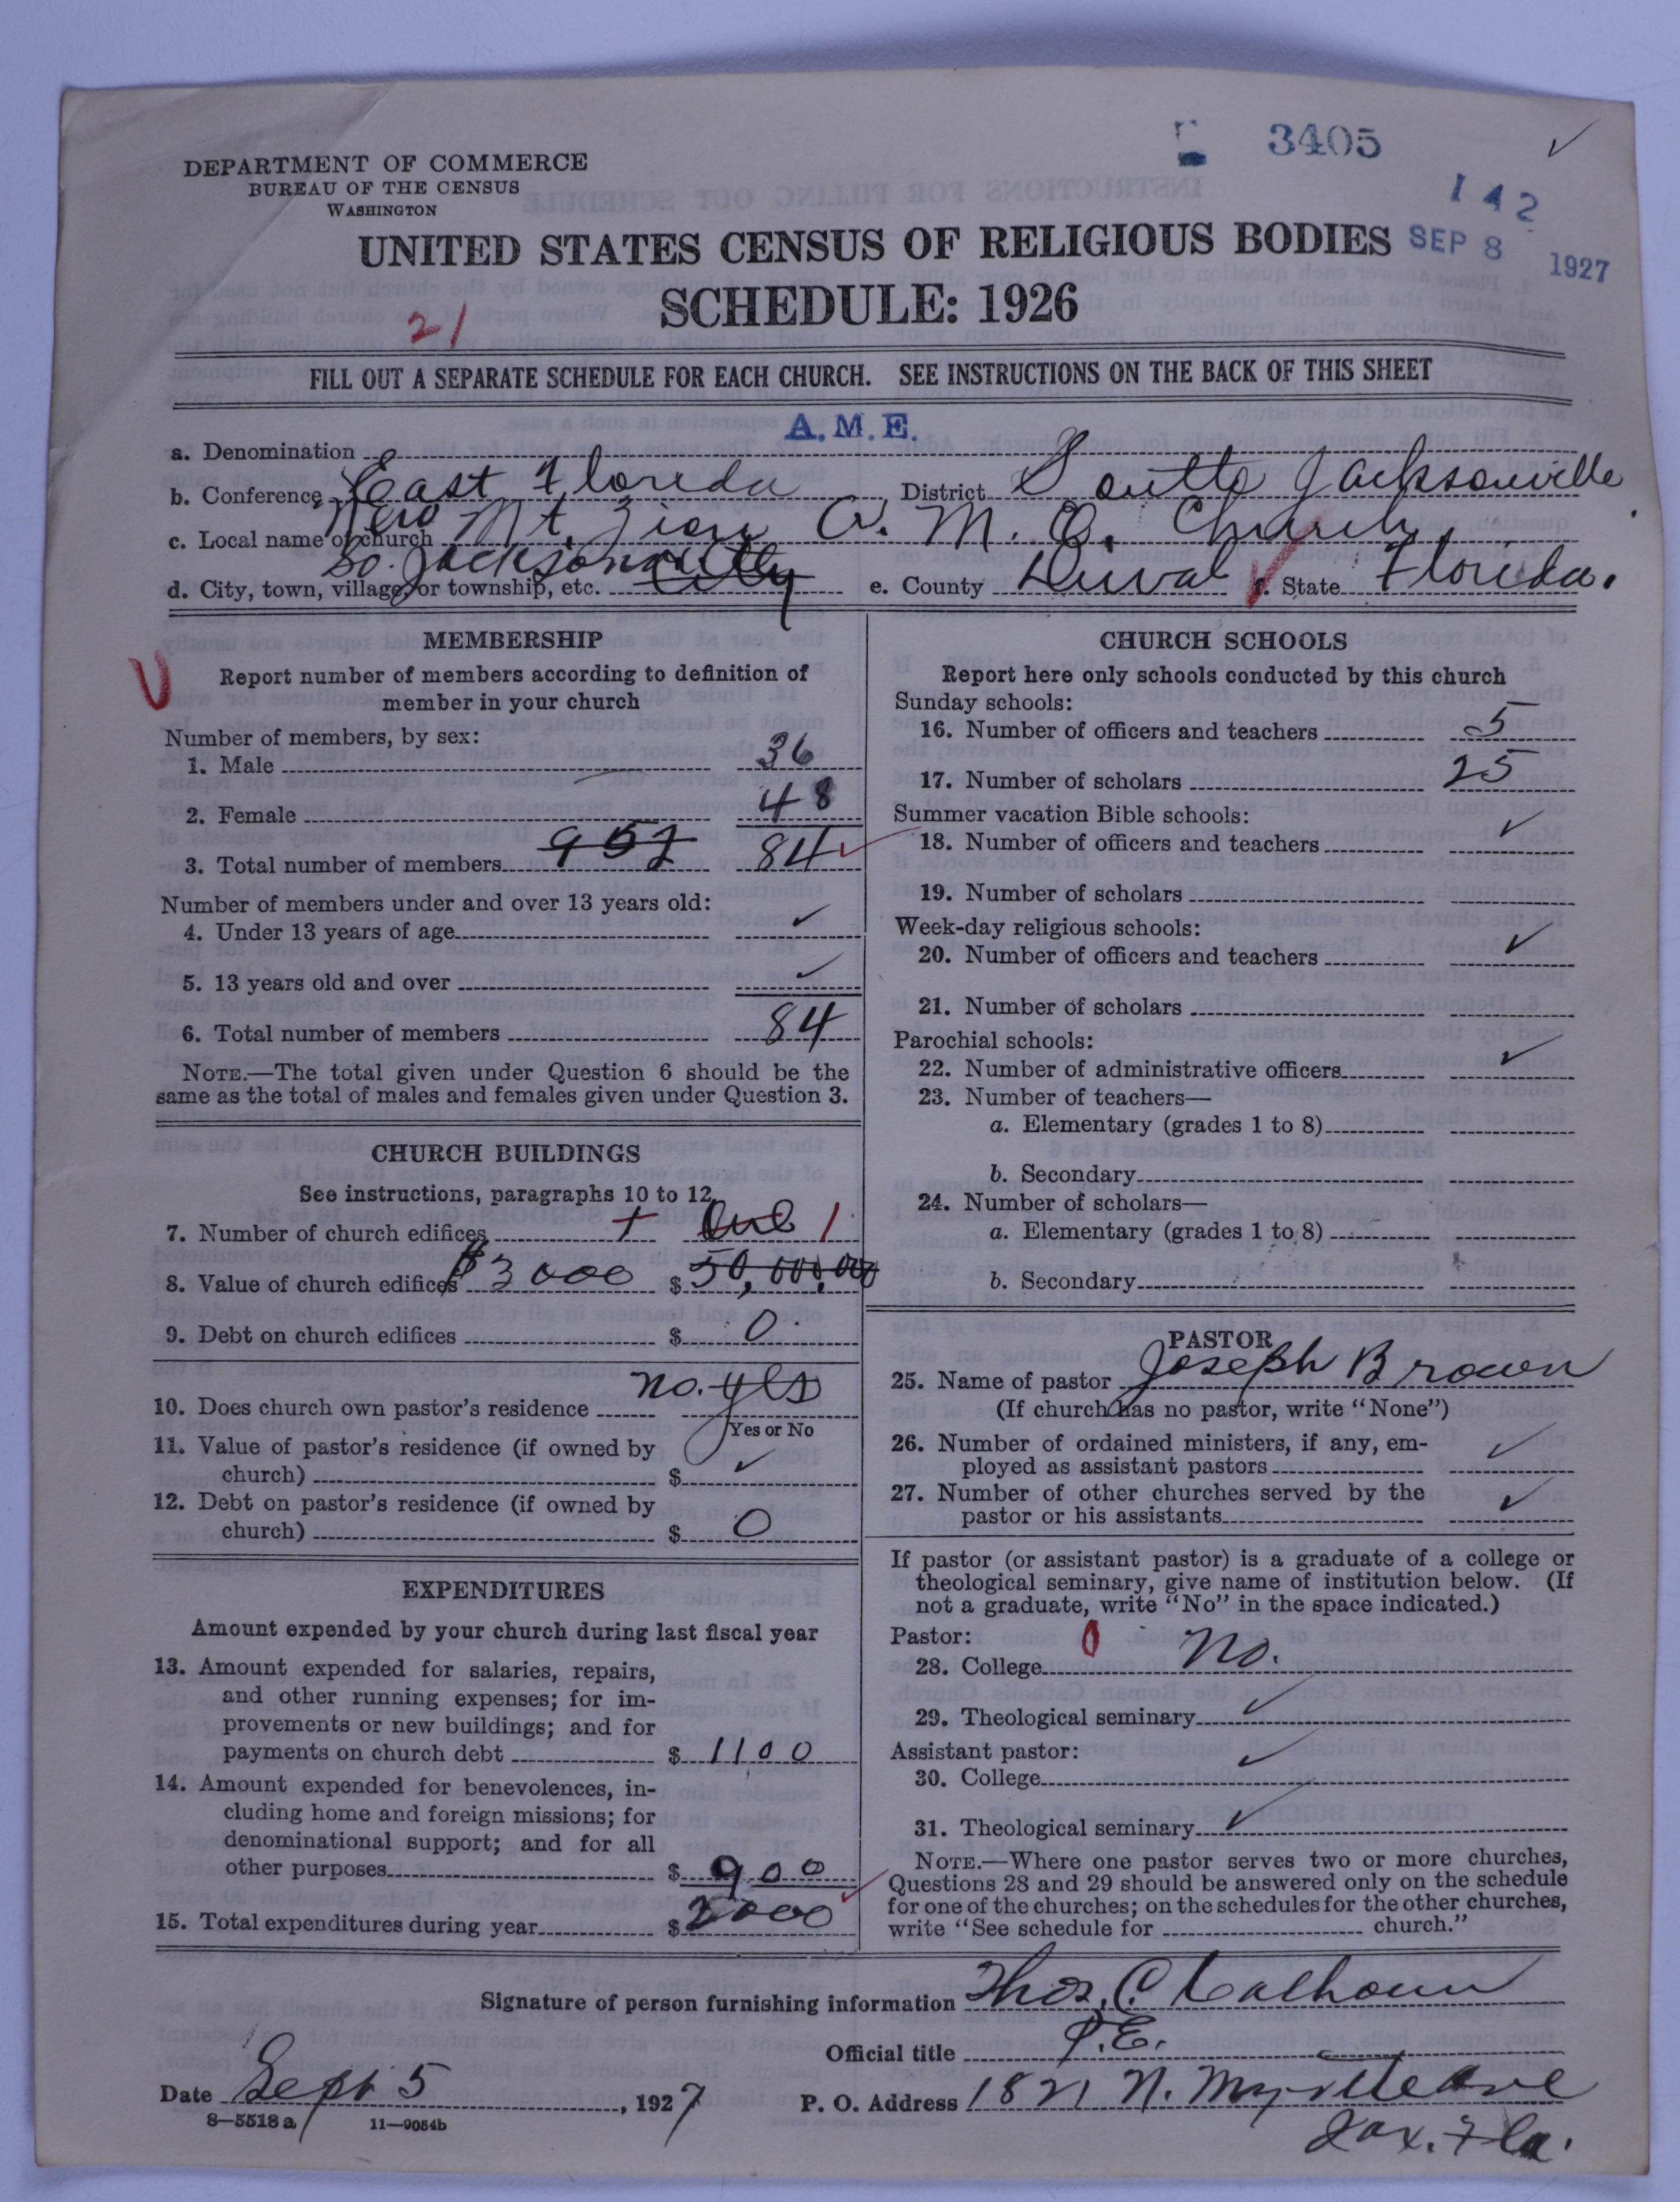 3405
142
DEPARTMENT OF COMMERCE
BUREAU OF THE CENSUS
WASHINGTON
UNITED STATES CENSUS OF RELIGIOUS BODIES
SEP 8 1927
SCHEDULE: 1926
21
FILL OUT A SEPARATE SCHEDULE FOR EACH CHURCH. SEE INSTRUCTIONS ON THE BACK OF THIS SHEET
a. Denomination A. M. E.
b. Conference East Florida, District South Jacksonville
c. Local name of church New Mt. Zion A. M. E. Church.
d. City, town, village, or township, etc. So. Jacksonville City e. County Duval f. State Florida.
MEMBERSHIP
Report number of members according to definition of
member in your church
Number of members, by sex:
1. Male 36
2. Female 48
3. Total number of members 952 84
Number of members under and over 13 years old:
4. Under 13 years of age ✓
5. 13 years old and over ✓
6. Total number of members 84
NOTE.—The total given under Question 6 should be the
same as the total of males and females given under Question 3.
CHURCH BUILDINGS
See instructions, paragraphs 10 to 12
7. Number of church edifices One 1
8. Value of church edifices $3000 $ 50,000.00
9. Debt on church edifices $ 0
10. Does church own pastor's residence no. yes
Yes or No
11. Value of pastor's residence (if owned by
church) $ ✓
12. Debt on pastor's residence (if owned by
church) $ 0
EXPENDITURES
Amount expended by your church during last fiscal year
13. Amount expended for salaries, repairs,
and other running expenses; for im-
provements or new buildings; and for
payments on church debt $ 1100
14. Amount expended for benevolences, in-
cluding home and foreign missions; for
denominational support; and for all
other purposes $ 900
15. Total expenditures during year $ 2000
CHURCH SCHOOLS
Report here only schools conducted by this church
Sunday schools:
16. Number of officers and teachers 5
17. Number of scholars 25
Summer vacation Bible schools:
18. Number of officers and teachers ✓
19. Number of scholars
Week-day religious schools:
20. Number of officers and teachers ✓
21. Number of scholars
Parochial schools:
22. Number of administrative officers ✓
23. Number of teachers—
a. Elementary (grades 1 to 8)
b. Secondary
24. Number of scholars—
a. Elementary (grades 1 to 8)
b. Secondary
PASTOR
25. Name of pastor Joseph Brown
(If church has no pastor, write "None")
26. Number of ordained ministers, if any, em-
ployed as assistant pastors ✓
27. Number of other churches served by the
pastor or his assistants ✓
If pastor (or assistant pastor) is a graduate of a college or
theological seminary, give name of institution below. (If
not a graduate, write "No" in the space indicated.)
Pastor: 0
28. College No.
29. Theological seminary ✓
Assistant pastor:
30. College ✓
31. Theological seminary ✓
NOTE.—Where one pastor serves two or more churches,
Questions 28 and 29 should be answered only on the schedule
for one of the churches; on the schedules for the other churches,
write "See schedule for church."
Signature of person furnishing information Thos. C. Calhoun
Official title P.E.
Date Sept 5, 1927 P. O. Address 1821 N. Myrtle ave
Jax. Fla.
8—5518 a 11—9054b